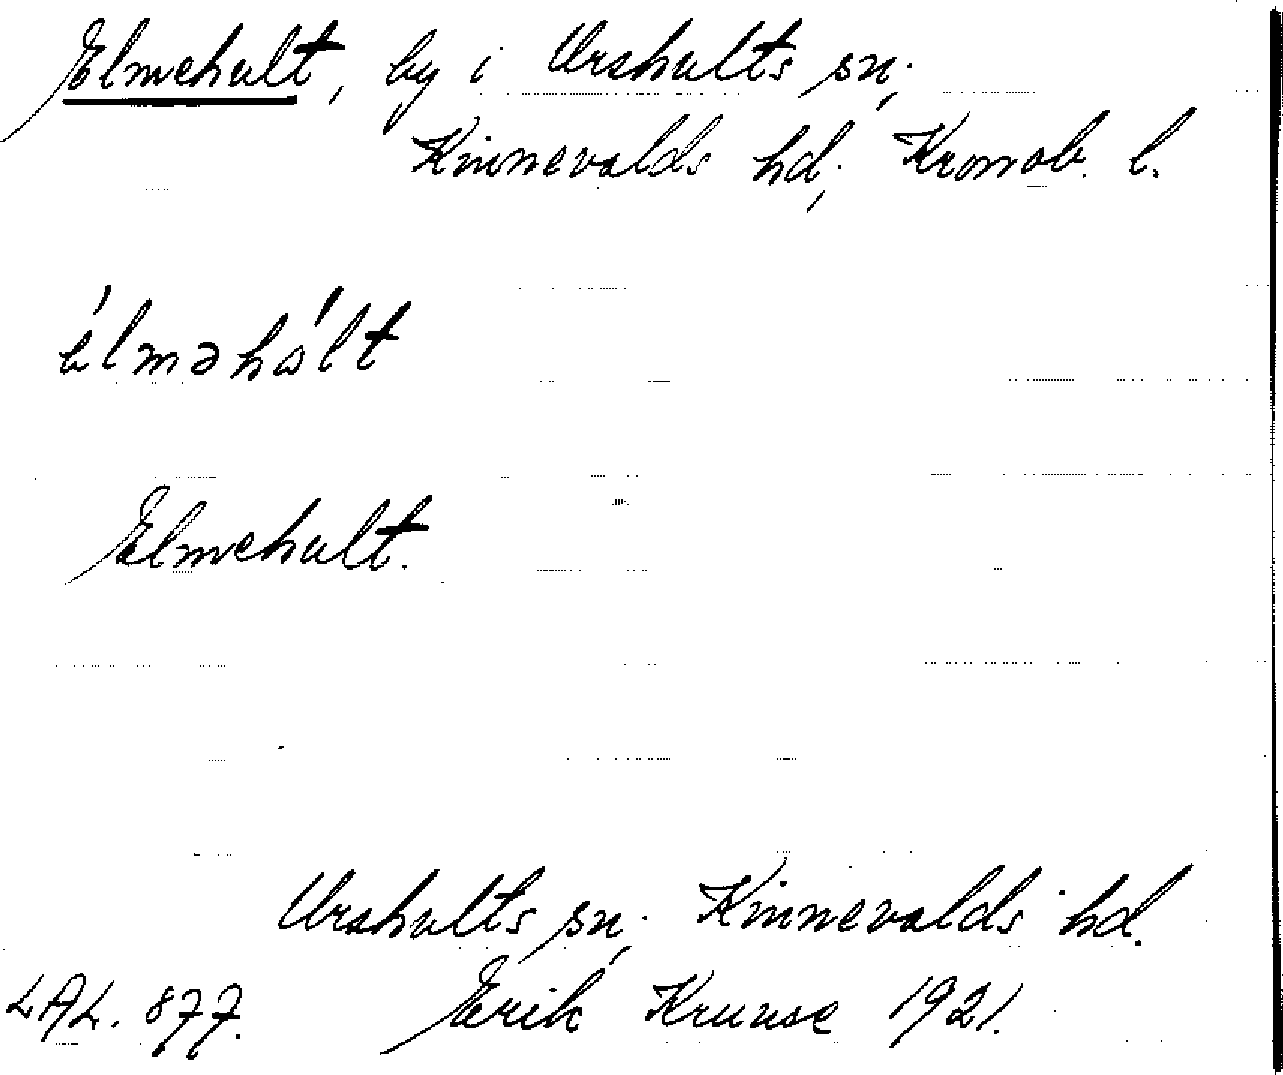 Elmehult, by i Urshults sn;
Kinnevalds hd; Kronob. l.
élməhólt
Elmehult.
Urshults sn; Kinnevalds hd.
LAL. 877. Erik Kruuse 1921.